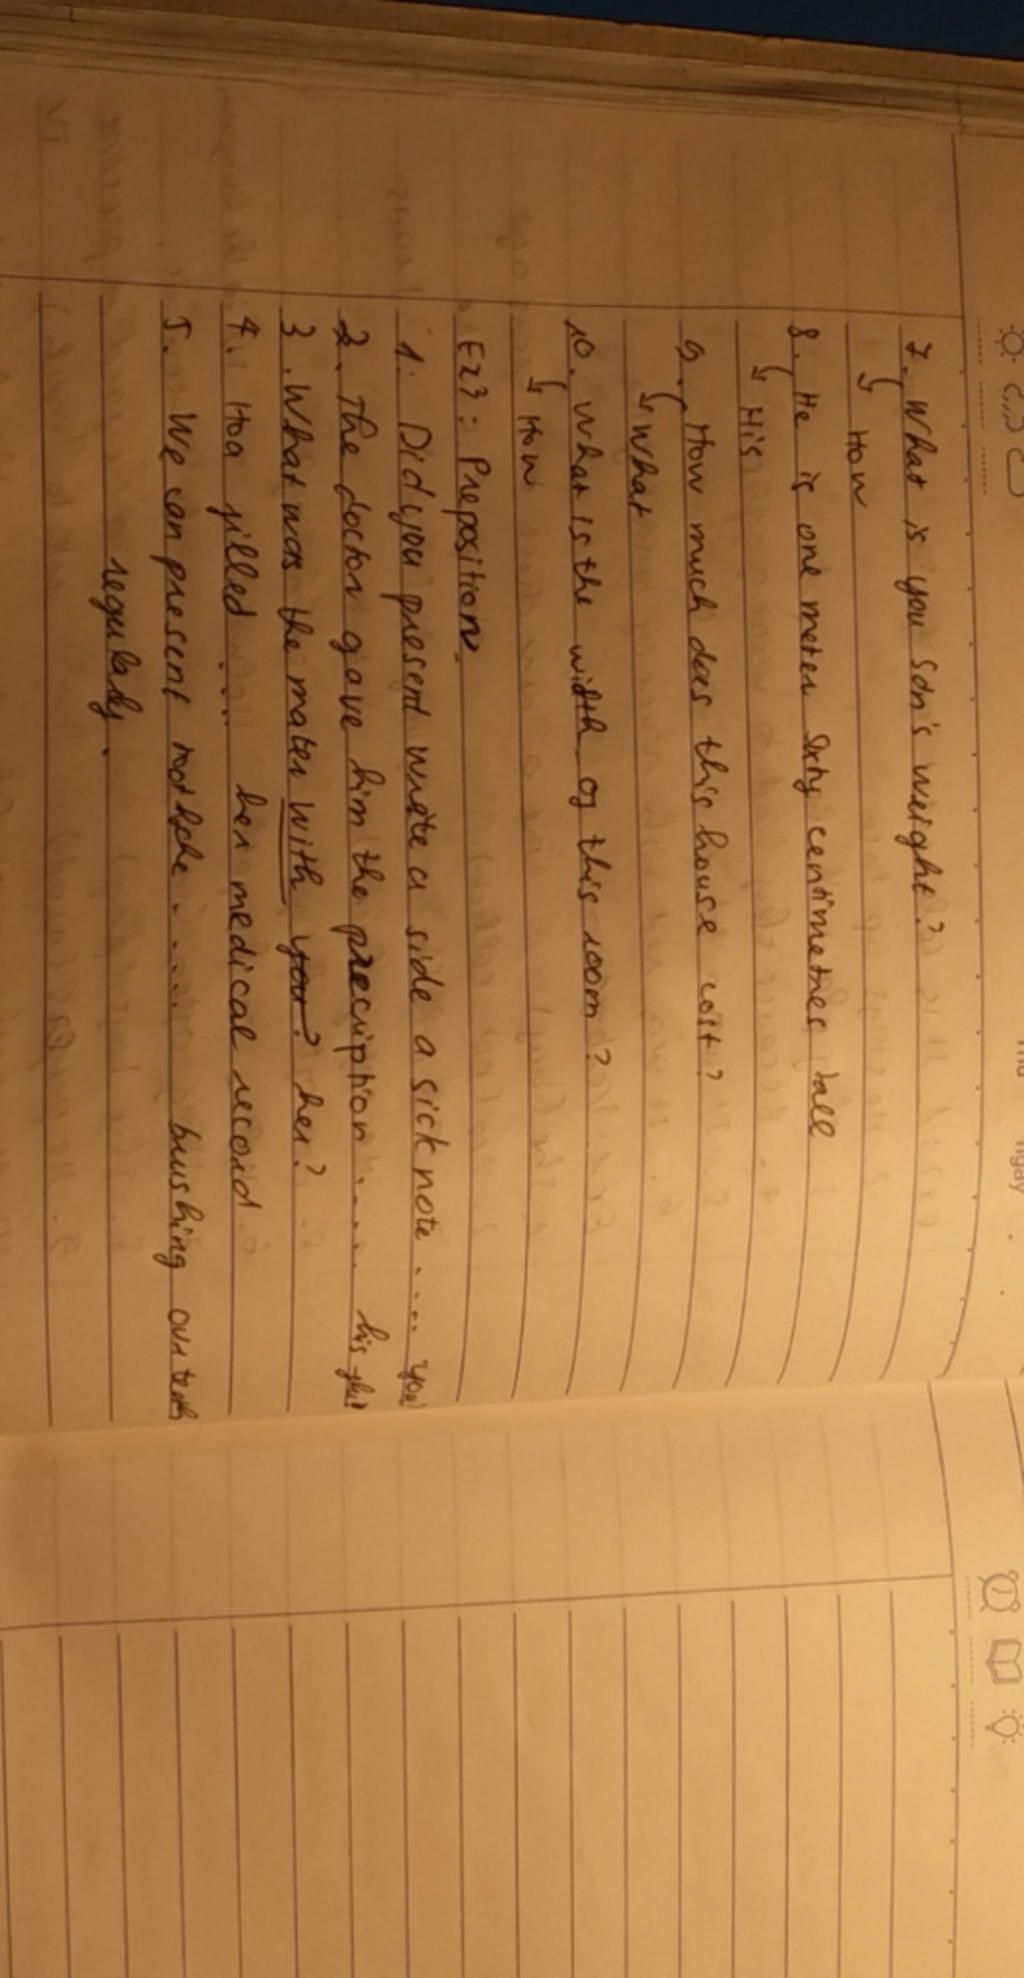 Thứ
ngày
7. What is you son's weight?
↳ How
8. He is one meter sixty centimetres tall
↳ His
9. How much does this house cost?
↳ What
10. What is the width of this room?
↳ How
Ex3: Preposition
1. Did you present write a side a sick note .... you
2. The doctor gave him the precription ..... his
3. What was the mater with you? her?
4. Hoa filled ..... her medical record
5. We can present ..... brushing our teeth
regularly.